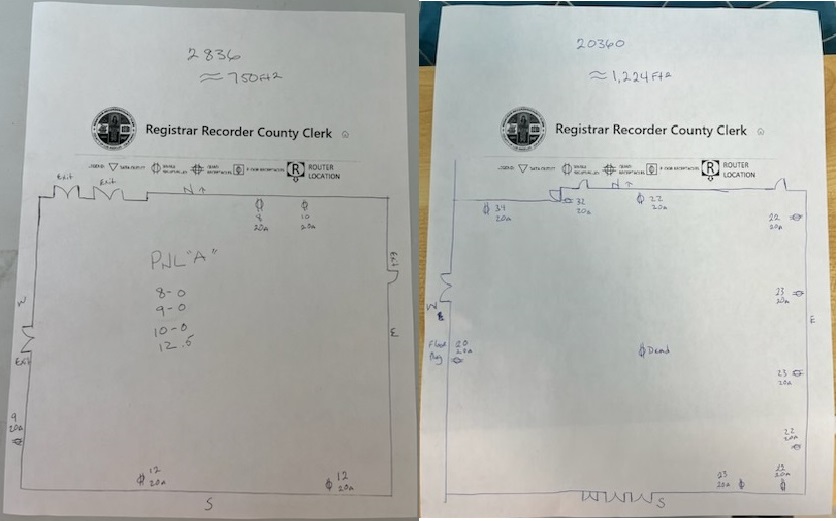 2836
≈ 750Ft2
Registrar Recorder County Clerk
LEGEND: DATA OUTLET
ROUTER
R LOCATION
Exit
Exit
N ↑
8
20A
10
20A
PNL "A"
8-0
9-0
10-0
12.5
Exit
W
E
Exit
9
20A
12
20A
12
20A
S
20360
≈ 1,224Ft2
Registrar Recorder County Clerk
LEGEND: DATA OUTLET
ROUTER
R LOCATION
N ↑
34
20A
32
20A
22
20A
22
20A
23
20A
W
E
Floor
Plug
20
20A
Dead
23
20A
22
20A
23
20A
20A
S